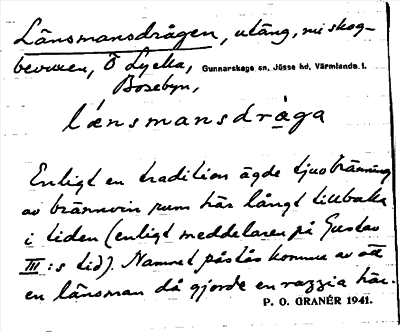 Länsmansdrågen, utäng, nu skog-
bevuxen, Ö Lycka, Gunnarskogs sn, Jösse hd, Värmlands l.
Bosebyn,
lænsmansdråga
Enligt en tradition ägde tjuvbränning
av brännvin rum här långt tillbaka
i tiden (enligt meddelaren på Gustav
III:s tid). Namnet påstås komma av att
en länsman då gjorde en razzia här.
P. O. GRANÉR 1941.